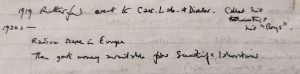 1919 Rutherford went to Cav. Lab. as Director. Called his
his "Boys".
1920s -
Radium scare in Europe
Then govt money available for Scientific Laboratories